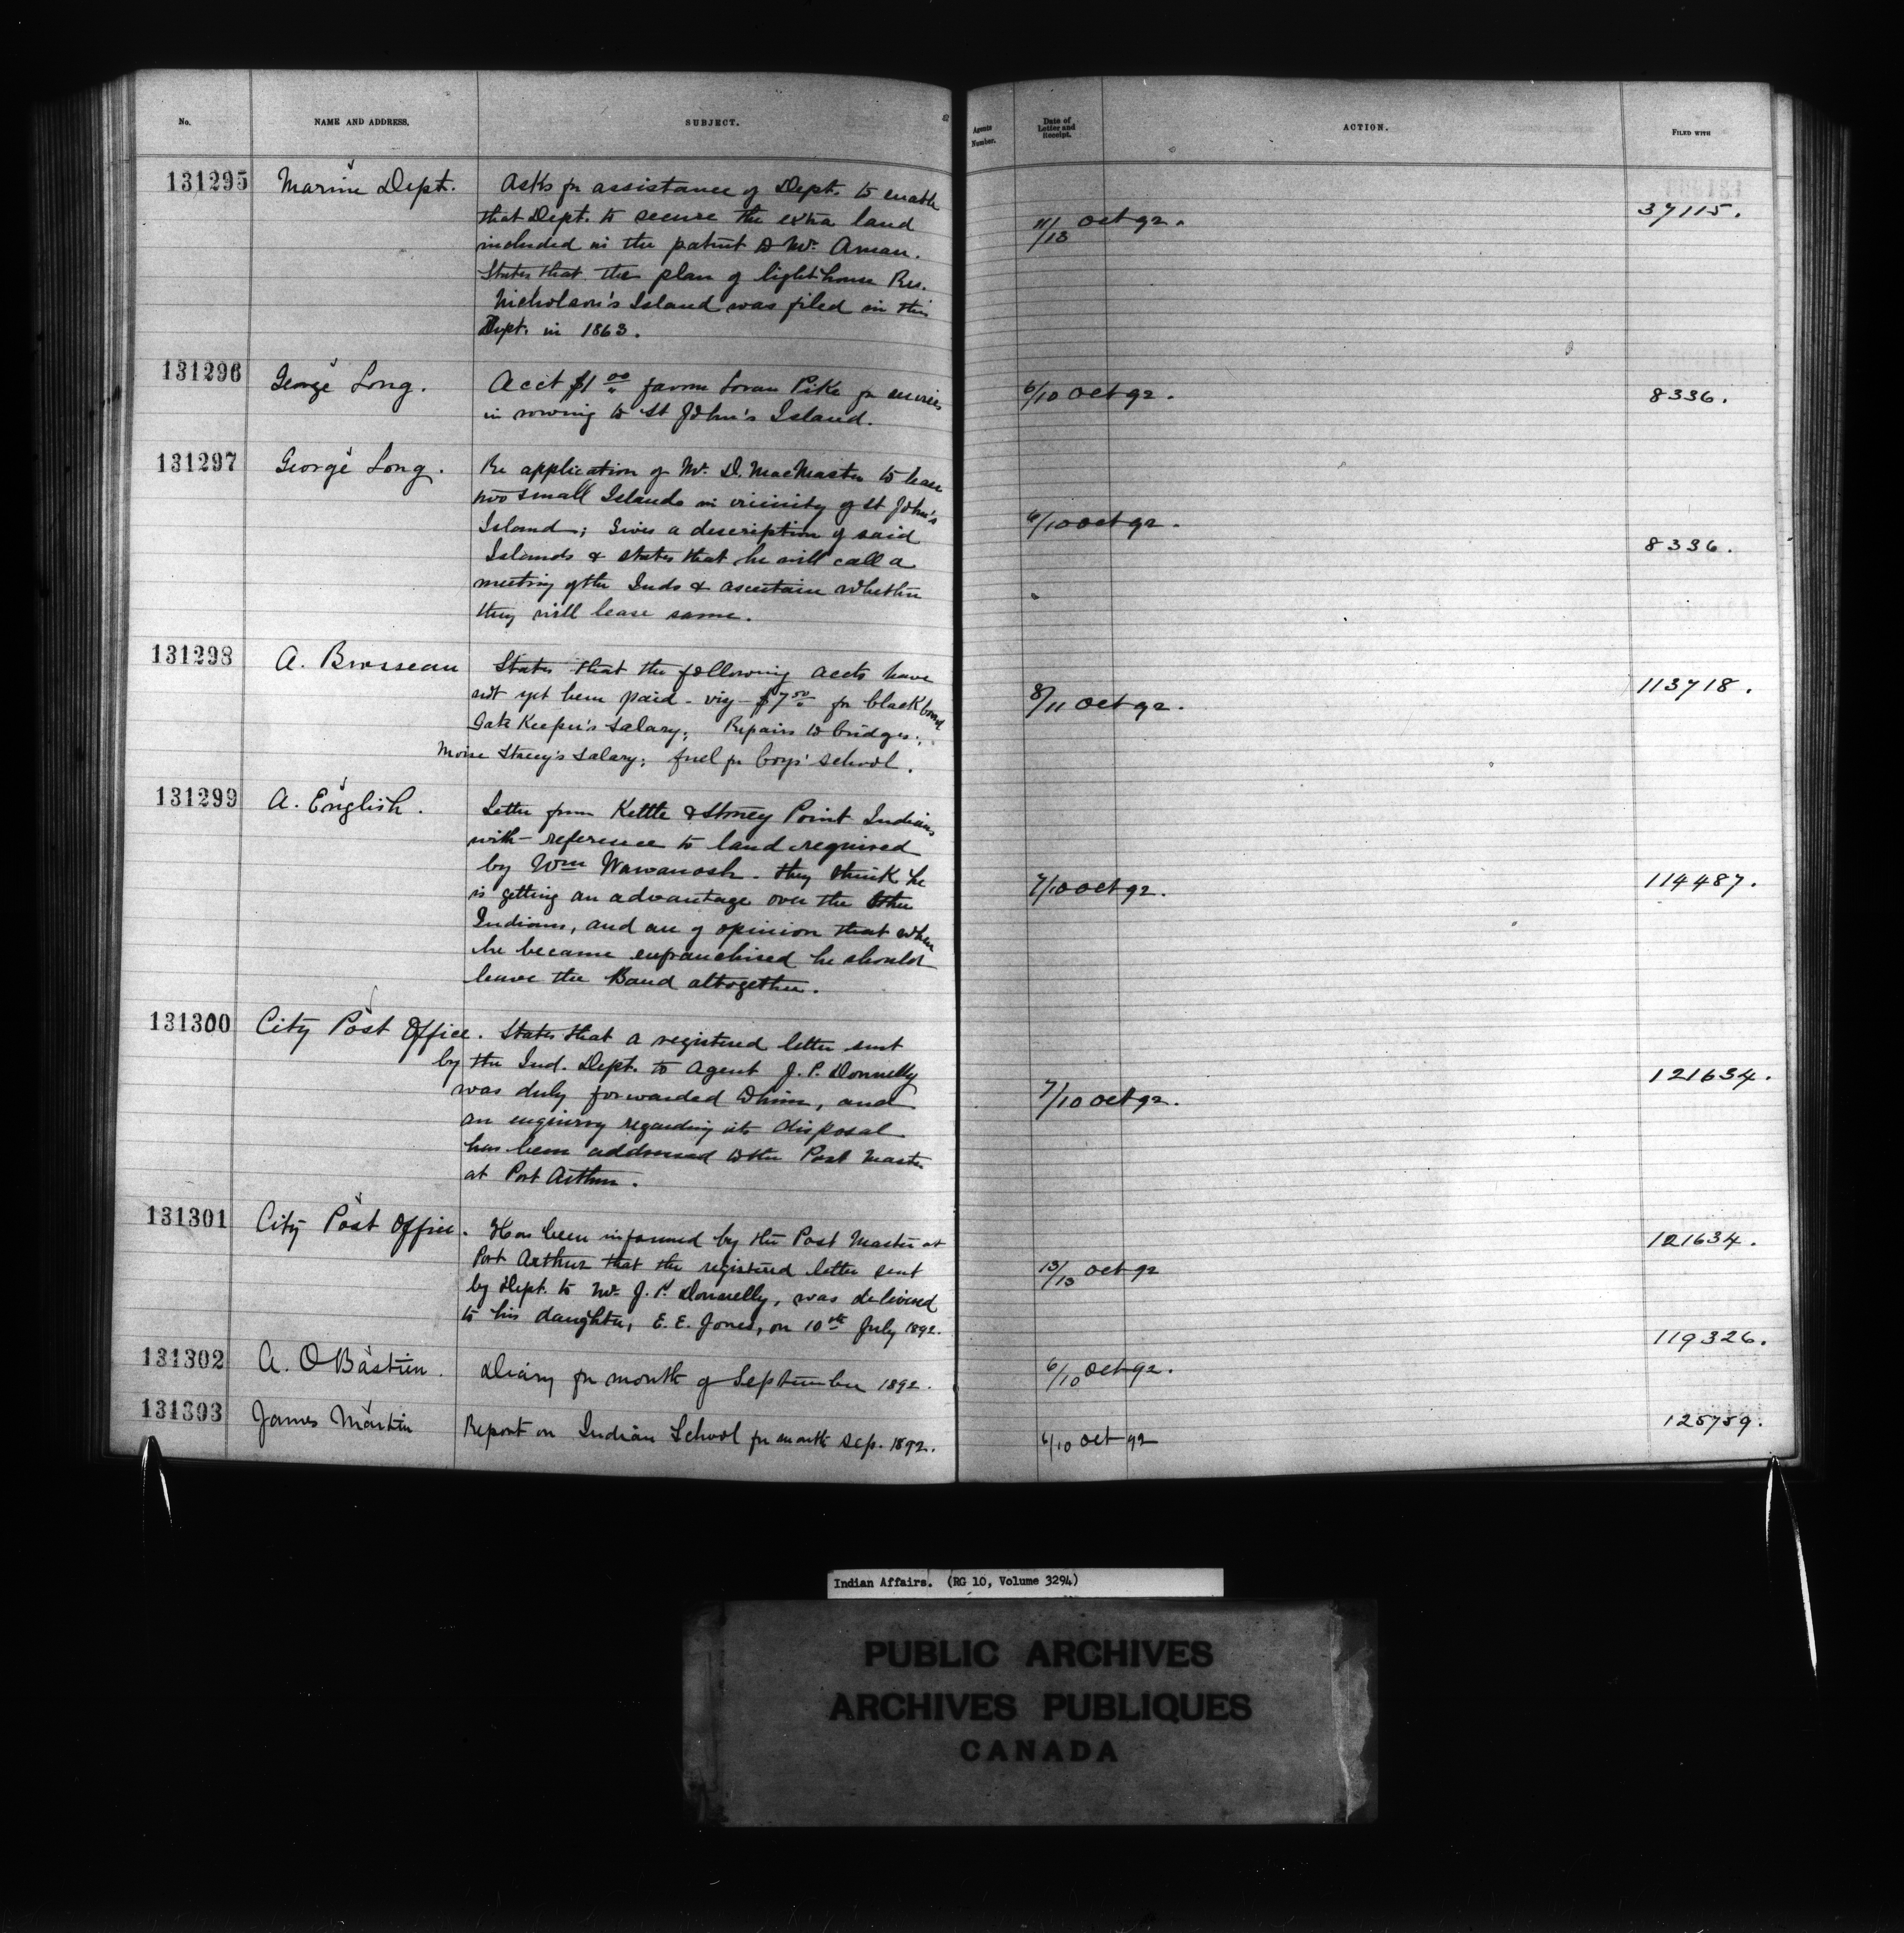 No. NAME AND ADDRESS. SUBJECT. Agents Number. Date of Letter and Receipt. ACTION. FILED WITH
131295 Marine Dept. Asks for assistance of Dept. to enable
that Dept. to secure the extra land
included in the patent to Mr. Aman.
States that the plan of light-house Res.
Nicholson's Island was filed in this
Dept. in 1863.
11/13 Oct 92. 37115.
131296 George Long. Acct $1.00 favor Loran Pike for services
in rowing to St John's Island.
6/10 Oct 92. 8336.
131297 George Long. Re application of Mr. D. MacMaster to lease
two small Islands in vicinity of St John's
Island; Gives a description of said
Islands & states that he will call a
meeting of the Inds & ascertain whether
they will lease same.
6/10 Oct 92. 8336.
131298 A. Brosseau States that the following accts have
not yet been paid - viz - $7.50 for blackboard
Gate Keeper's salary; Repairs to bridges;
Moise Stacey's salary; fuel for boys' school.
8/11 Oct 92. 113718.
131299 A. English. Letter from Kettle & Stoney Point Indians
with reference to land required
by Wm Wawanosh. They think he
is getting an advantage over the other
Indians, and are of opinion that when
he became enfranchised he should
leave the Band altogether.
7/10 Oct 92. 114487.
131300 City Post Office. States that a registered letter sent
by the Ind. Dept. to Agent J. P. Donnelly
was duly forwarded to him, and
an enquiry regarding its disposal
has been addressed to the Post Master
at Port Arthur.
7/10 Oct 92. 121634.
131301 City Post Office. Has been informed by the Post Master at
Port Arthur that the registered letter sent
by Dept. to Mr. J. P. Donnelly, was delivered
to his daughter, E. E. Jones, on 10th July 1892.
13/13 Oct 92 121634.
131302 A. O Bastien. Diary for month of September 1892.
6/10 Oct 92. 119326.
131303 James Martin Report on Indian School for month Sep. 1892.
6/10 Oct 92 125759.
Indian Affairs. (RG 10, Volume 3294)
PUBLIC ARCHIVES
ARCHIVES PUBLIQUES
CANADA